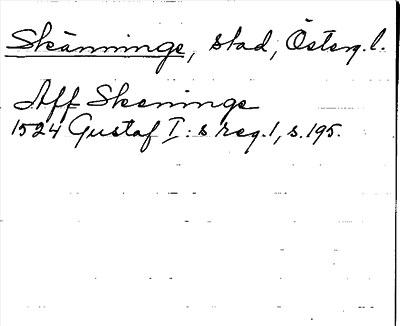 Skänninge, stad, Österg.l.
Aff Skeninge
1524 Gustaf I:s reg. 1, s. 195.